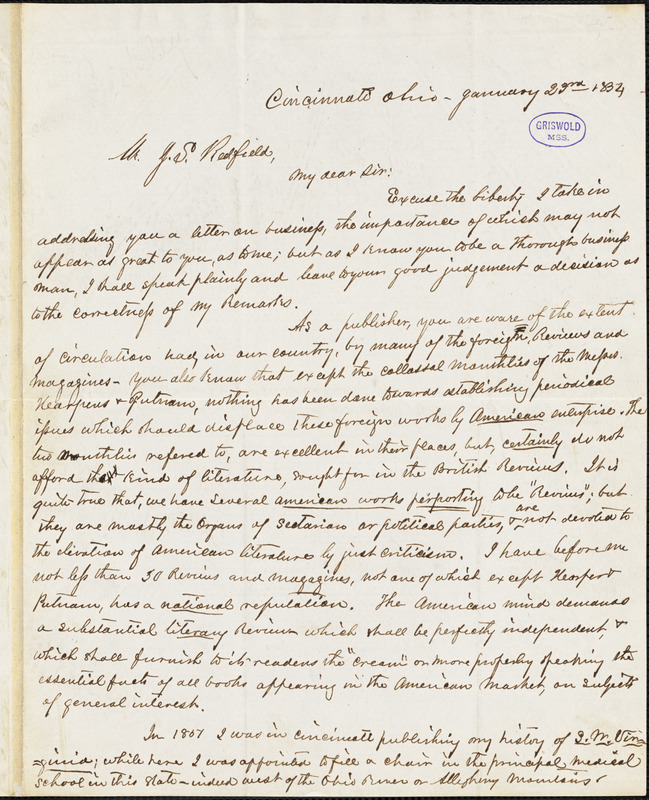 Cincinnati Ohio - January 23rd 1854
GRISWOLD
MSS.
Mr. J. S. Redfield,
My dear Sir:
Excuse the liberty I take in
addressing you a letter on business, the importance of which may not
appear as great to you, as to me; but as I know you to be a thorough business
man, I shall speak plainly and leave to your good judgement a decision as
to the correctness of my Remarks.
As a publisher, you are ware of the extent
of circulation had, in our country, by many of the foreign, Reviews and
magazines - you also know that except the collassal monthlies of the Messrs.
Hearpers & Putnam, nothing has been done towards establishing periodical
issues which should displace these foreign works by American enterprise. The
two monthlies refered to, are excellent in their places, but, certainly do not
afford that kind of literature, sought for in the British Reviews. It is
quite true that, we have several american works perporting to be "Reviews"; but
they are mostly the Organs of Sectarian or political parties, & are not devoted to
the elivation of American literature by just criticism. I have before me
not less than 50 Reviews and magazines, not one of which except Hearper &
Putnam, has a national reputation. The American mind demands
a substantial literary Review which shall be perfictly independent &
which shall furnish to its readers the "cream" or more properly speaking the
essential facts of all books appearing in the American market, on subjects
of general interest.
In 1851 I was in Cincinnati publishing my history of
while here I was appointed to fill a chair in the principal medical
school in this State - indeed west of the Ohio River or Allegheny Mountains.